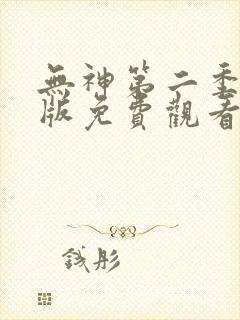 無神第二季
版免費觀看
錢彤